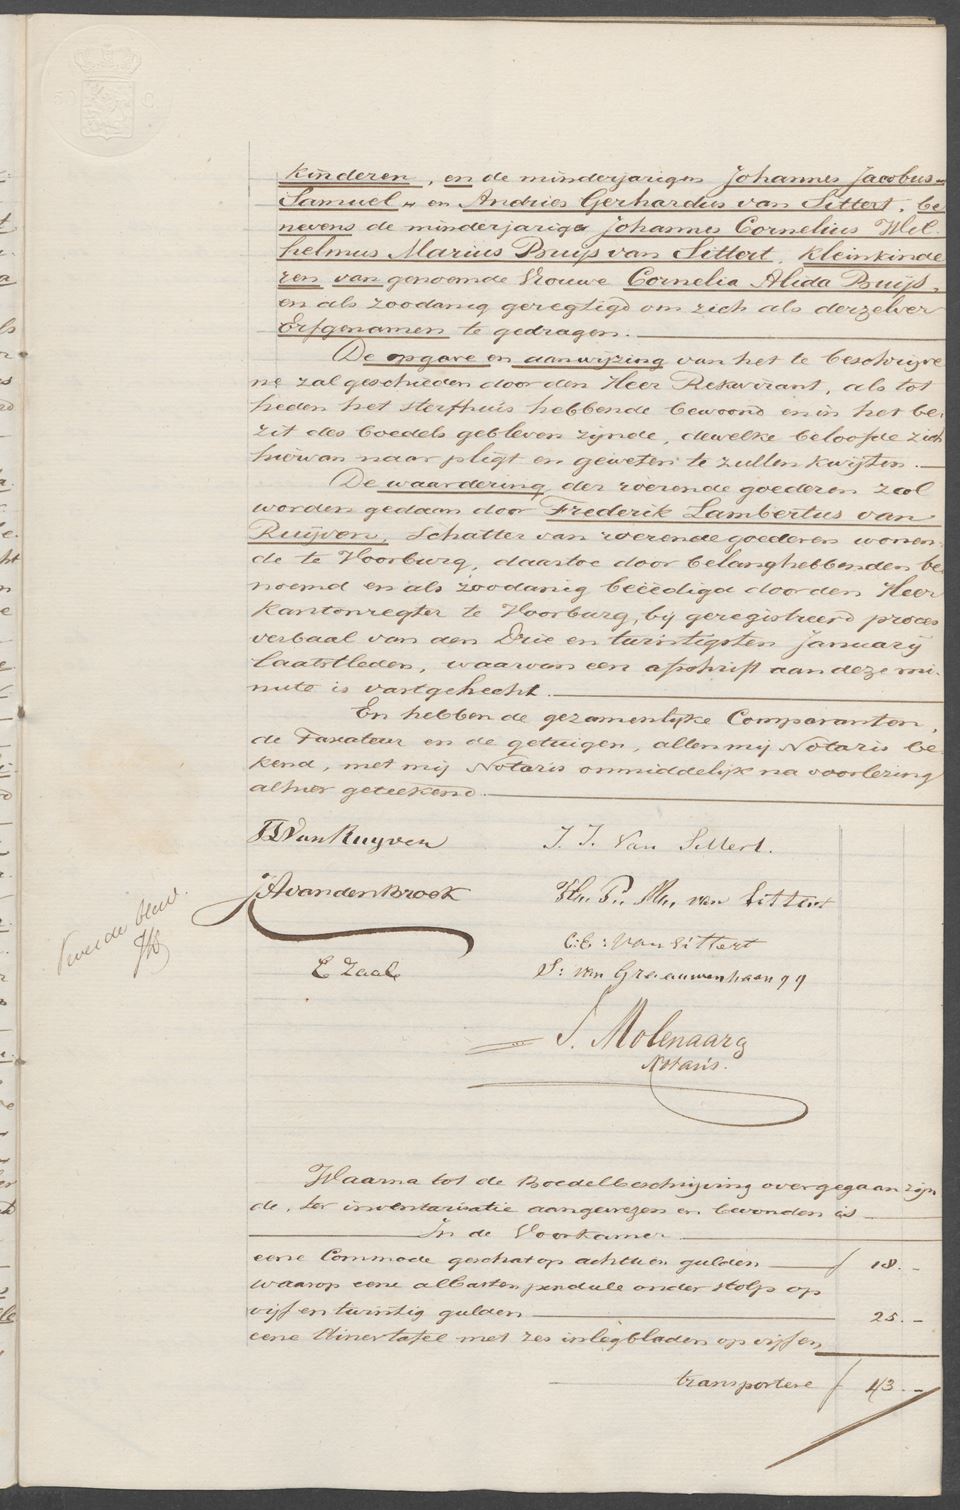 50 C
kinderen, en de minderjarigen Johannes Jacobus
Samuel en Andries Gerhardus van Sittert, be
nevens de minderjarige Johannes Cornelius Wil-
helmus Marius Buijs van Sittert, kleinkinde
ren van genoemde Vrouwe Cornelia Alida Buijs,
en als zoodanig geregtigd om zich als derzelver
Erfgenamen te gedragen.
De opgave en aanwijzing van het te beschrijve
ne zal geschieden door den Heer Rekwirant, als tot
heden het sterfhuis hebbende bewoond en in het be-
zit des boedels gebleven zijnde, dewelke beloofde zich
hiervan naar pligt en geweten te zullen kwijten.
De waardering der roerende goederen zal
worden gedaan door Frederik Lambertus van
Ruijven, Schatter van roerende goederen wonen-
de te Voorburg, daartoe door belanghebbenden be
noemd en als zoodanig beëedigd door den Heer
Kantonregter te Voorburg, bij geregistreerd proces
verbaal van den Drie en twintigsten January
laatstleden, waarvan een afschrift aan deze mi-
nute is vastgehecht.
En hebben de gezamenlijke Comparanten,
de Taxateur en de getuigen, allen mij Notaris be-
kend, met mij Notaris onmiddelijk na voorlezing
alhier geteekend.
FL van Ruyven J. J. Van Sittert.
JA van den Broek W. P. M. van Sittert
Tweede blad.
C: C: van Sittert
E Zaal S: van Graauwenhaan qq
S. Molenaar
Notaris.
Waarna tot de Boedelbeschrijving overgegaan zijn
de, ter inventarisatie aangewezen en bevonden is
In de Voorkamer
eene Commode geschat op achttien gulden f 18.-
waarop eene albasten pendule onder stolp op
vijf en twintig gulden 25.-
eene dinertafel met zes inlegbladen op vijf en
transportere f 43.-